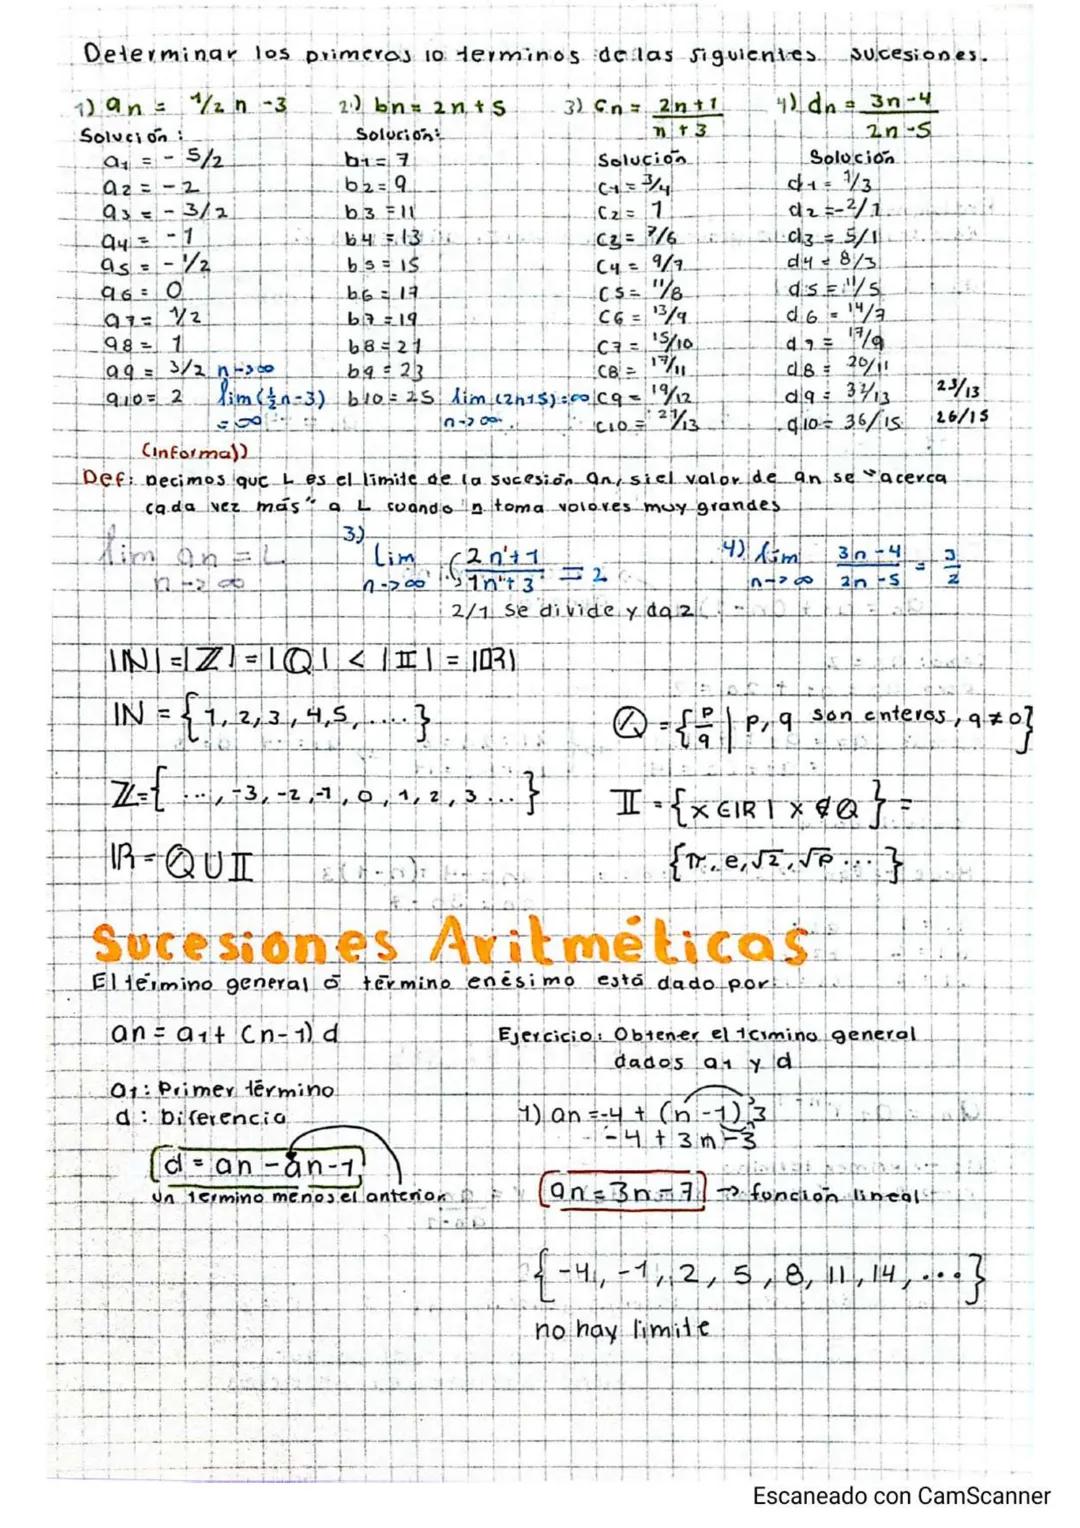 Determinar los primeros 10 terminos de las siguientes sucesiones.
1) an = 1/2 n - 3
Solución:
a1 = - 5/2
a2 = - 2
a3 = - 3/2
a4 = - 1
a5 = - 1/2
a6 = 0
a7 = 1/2
a8 = 1
a9 = 3/2
a10 = 2
n→∞
lim (1/2 n-3)
= ∞
2) bn = 2n + 5
Solución:
b1 = 7
b2 = 9
b3 = 11
b4 = 13
b5 = 15
b6 = 17
b7 = 19
b8 = 21
b9 = 23
b10 = 25
lim (2n+5) = ∞
n→∞
3) Cn = 2n+1
n + 3
Solución
C1 = 3/4
C2 = 1
C3 = 7/6
C4 = 9/7
C5 = 11/8
C6 = 13/9
C7 = 15/10
C8 = 17/11
C9 = 19/12
C10 = 21/13
4) dn = 3n-4
2n-5
Solución
d1 = 1/3
d2 = -2/1
d3 = 5/1
d4 = 8/3
d5 = 11/5
d6 = 14/7
d7 = 17/9
d8 = 20/11
d9 = 32/13 23/13
d10 = 36/15 26/15
(informal)
Def: Decimos que L es el limite de la sucesión an, si el valor de an se "acerca
cada vez más" a L cuando n toma valores muy grandes
lim an = L
n→∞
3)
lim (2n+1 = 2
n→∞ 1n+3
2/1 se divide y da 2
4) lim 3n-4 = 3
n→∞ 2n-5 2
|ℕ| = |ℤ| = |ℚ| < |𝕀| = |ℝ|
ℕ = {1, 2, 3, 4, 5, ....}
ℚ = {p/q | p, q son enteros, q ≠ 0}
ℤ = { ..., -3, -2, -1, 0, 1, 2, 3 ... }
𝕀 = {x ∈ ℝ | x ∉ ℚ } =
ℝ = ℚ ∪ 𝕀
{π, e, √2, √p ... }
Sucesiones Aritméticas
El término general ó término enésimo está dado por:
an = a1 + (n-1) d
a1: Primer término
d: Diferencia
d = an - an-1
un termino menos el anterior
Ejercicio: Obtener el término general
dados a1 y d
1) an = -4 + (n-1) 3
-4 + 3n - 3
an = 3n - 7 → función lineal
{ -4, -1, 2, 5, 8, 11, 14, ... }
no hay limite
Escaneado con CamScanner